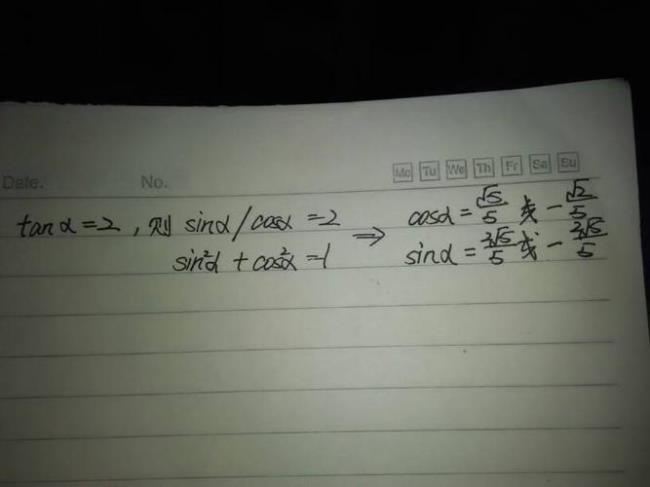 Date. No. Mo Tu We Th Fr Sa Su
tanα=2, 则 sinα/cosα=2 ⇒ cosα=√5/5 或 -√5/5
sin²α+cos²α=1 sinα=2√5/5 或 -2√5/5